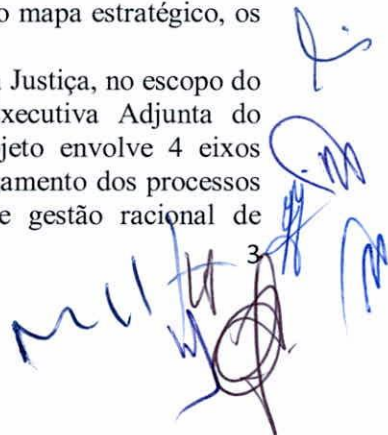 o mapa estratégico, os
Justiça, no escopo do
xecutiva Adjunta do
jeto envolve 4 eixos
amento dos processos
e gestão racional de
3